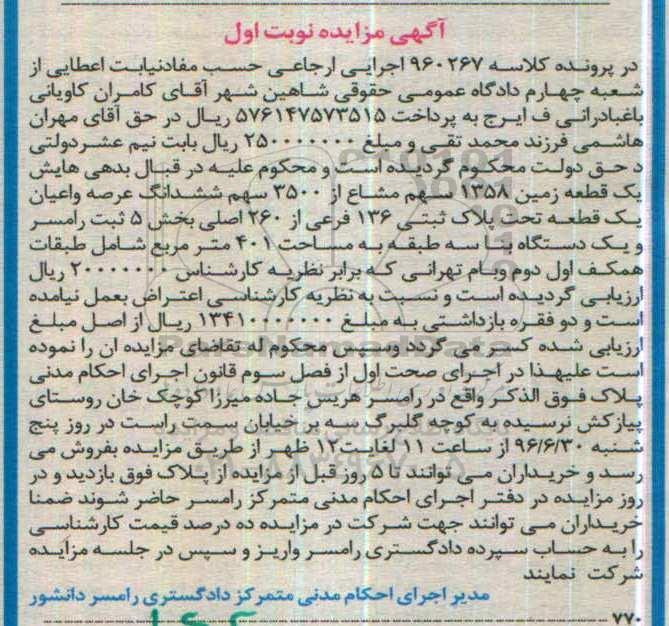 آگهی مزایده نوبت اول
در پرونده کلاسه ۹۶۰۲۶۷ اجرایی ارجاعی حسب مفادنیابت اعطایی از
شعبه چهارم دادگاه عمومی حقوقی شاهین شهر آقای کامران کاویانی
باغبادرانی ف ایرج به پرداخت ۵۷۶۱۴۷۵۷۳۵۱۵ ریال در حق آقای مهران
هاشمی فرزند محمد تقی و مبلغ ۲۵۰۰۰۰۰۰۰۰ ریال بابت نیم عشردولتی
د حق دولت محکوم گردیده است و محکوم علیه در قبال بدهی هایش
یک قطعه زمین ۱۳۵۸ سهم مشاع از ۳۵۰۰ سهم ششدانگ عرصه واعیان
یک قطعه تحت پلاک ثبتی ۱۳۶ فرعی از ۲۶۰ اصلی بخش ۵ ثبت رامسر
و یک دستگاه بنا سه طبقه به مساحت ۴۰۱ متر مربع شامل طبقات
همکف اول دوم وبام تهرانی که برابر نظریه کارشناس ۲۰۰۰۰۰۰۰۰ ریال
ارزیابی گردیده است و نسبت به نظریه کارشناسی اعتراض بعمل نیامده
است و دو فقره بازداشتی به مبلغ ۱۳۴۱۰۰۰۰۰۰۰ ریال از اصل مبلغ
ارزیابی شده کسر می گردد وسپس محکوم له تقاضای مزایده ان را نموده
است علیهذا در اجرای صحت اول از فصل سوم قانون اجرای احکام مدنی
پلاک فوق الذکر واقع در رامسر هریس جاده میرزا کوچک خان روستای
پیازکش نرسیده به کوچه گلبرگ سه بر خیابان سمت راست در روز پنج
شنبه ۹۶/۶/۳۰ از ساعت ۱۱ لغایت۱۲ ظهر از طریق مزایده بفروش می
رسد و خریداران می توانند تا ۵ روز قبل از مزایده از پلاک فوق بازدید و در
روز مزایده در دفتر اجرای احکام مدنی متمرکز رامسر حاضر شوند ضمنا
خریداران می توانند جهت شرکت در مزایده ده درصد قیمت کارشناسی
را به حساب سپرده دادگستری رامسر واریز و سپس در جلسه مزایده
شرکت نمایند
مدیر اجرای احکام مدنی متمرکز دادگستری رامسر دانشور
۷۷۰